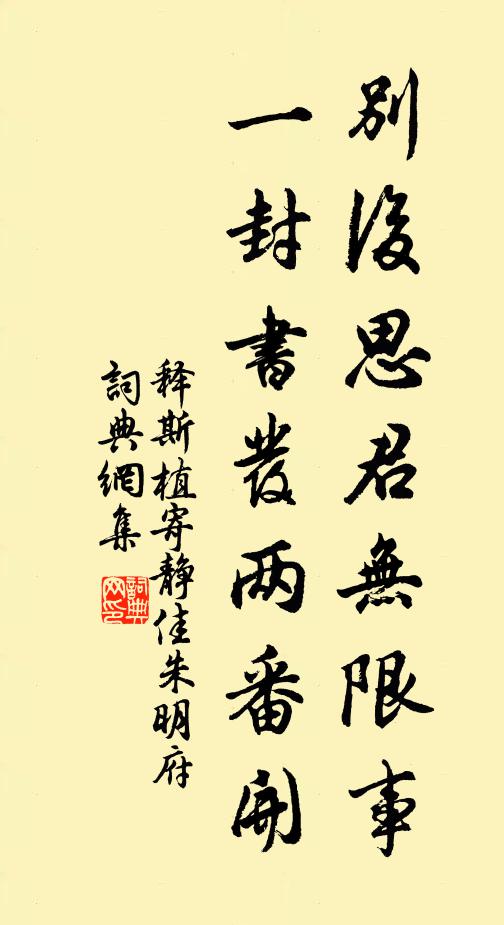 別後思君無限事
一封書發两番開
释斯植寄静佳朱明府
詞典網集
詞典网印